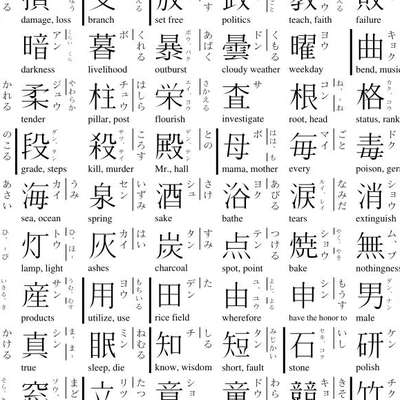 damage, loss branch set free politics teach, faith failure
暗 アン 暮 ボ くれる 暴 ボウ、バク あばく 曇 ドン くもる 曜 ヨウ 曲 キョク
darkness livelihood outburst cloudy weather weekday bend, music
かれる 柔 ジュウ やわらか 柱 チュウ はしら 栄 エイ、ヨウ さかえる 査 サ 根 コン ね 格 カク
tender pillar, post flourish investigate root, head status, rank
のこる 段 ダン 殺 サツ、サイ ころす 殿 デン、テン との 母 ボ はは 毎 マイ ごと 毒 ドク
grade, steps kill, murder Mr., hall mama, mother every poison, ger
あさい 海 カイ うみ 泉 セン いずみ 酒 シュ さけ 浴 ヨク あびる 涙 ルイ、レイ なみだ 消 ショウ
sea, ocean spring sake bathe tears extinguish
灯 トウ ひ 灰 カイ はい 炭 タン すみ 点 テン つける 焼 ショウ 無 ム、ブ
lamp, light ashes charcoal spot, point bake nothingness
産 サン 用 ヨウ もちいる 田 デン た 由 ユ、ユウ よし 申 シン もうす 男 ダン、ナン
products utilize, use rice field wherefore have the honor to male
かける 真 シン ま 眠 ミン ねむる 知 チ しる 短 タン みじかい 石 セキ、コク いし 研 ケン
true sleep, die know, wisdom short, fault stone polish
窓 ソウ まど 立 リツ たつ 章 ショウ 童 ドウ わら 競 きそ 竹 チク